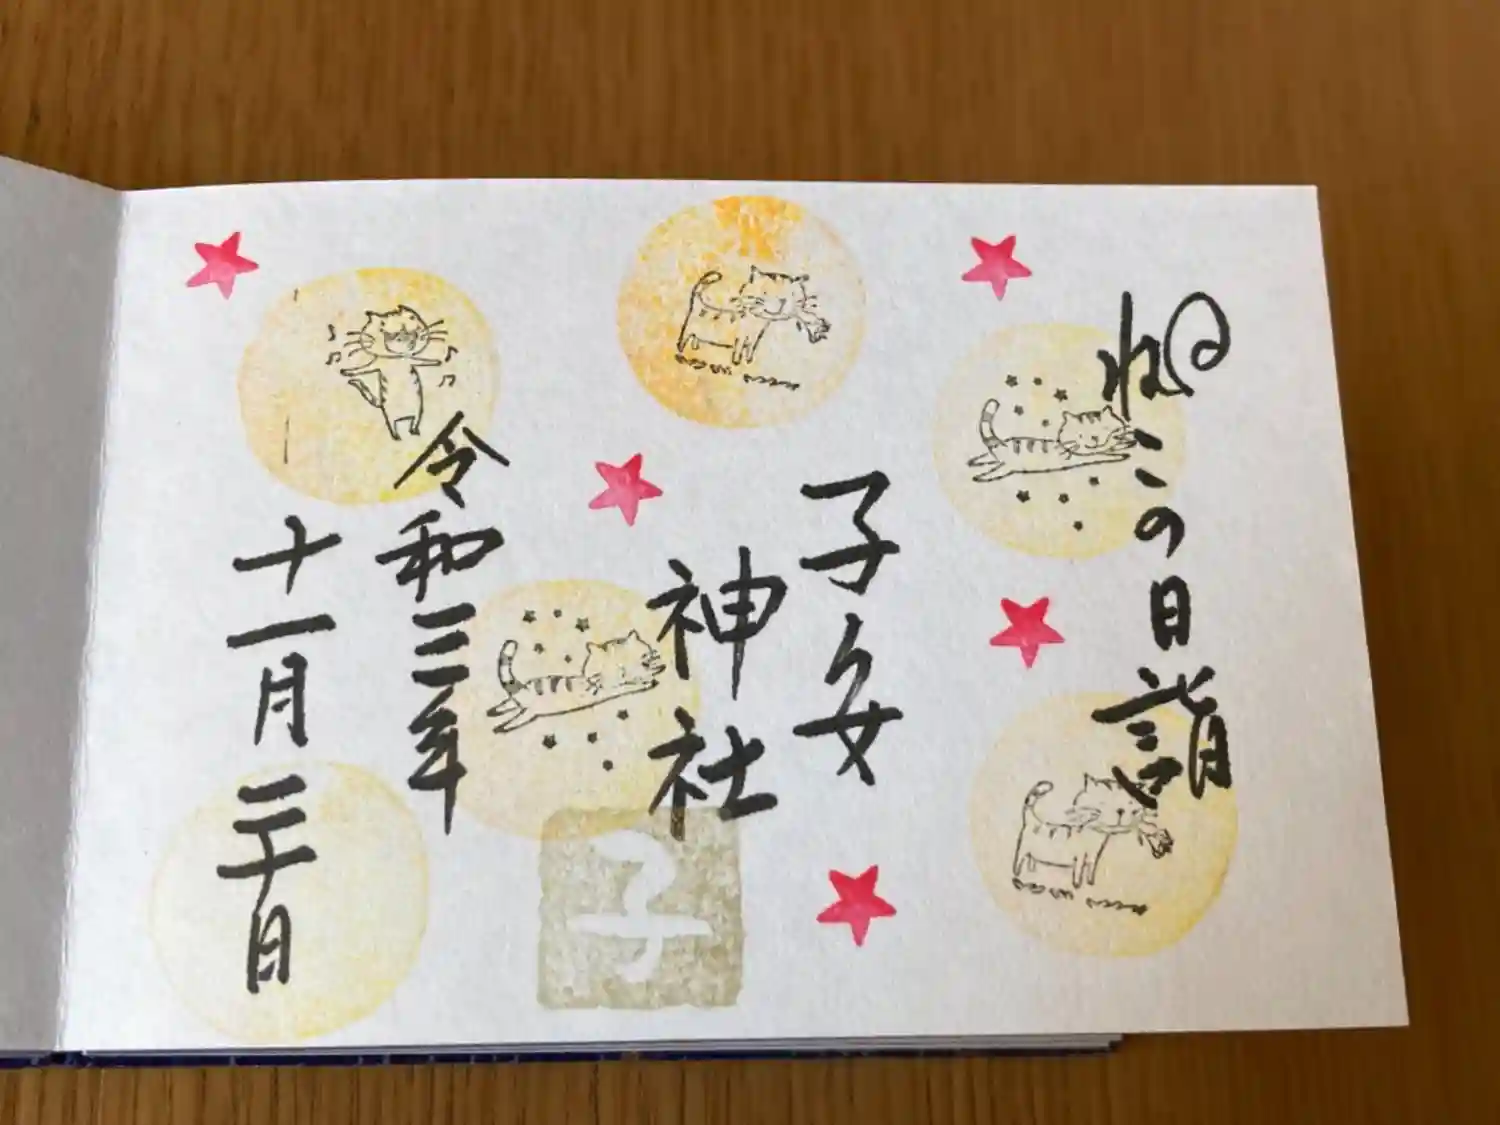 ねこの日詣
子安
神社
子
令和三年
十一月二十日